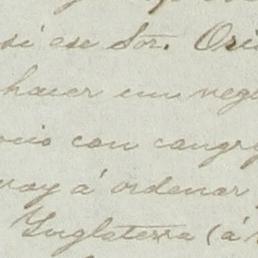 si ese Sor. Ori
hacer un nego
ocio con cangre
voy á ordenar
Inglaterra (á